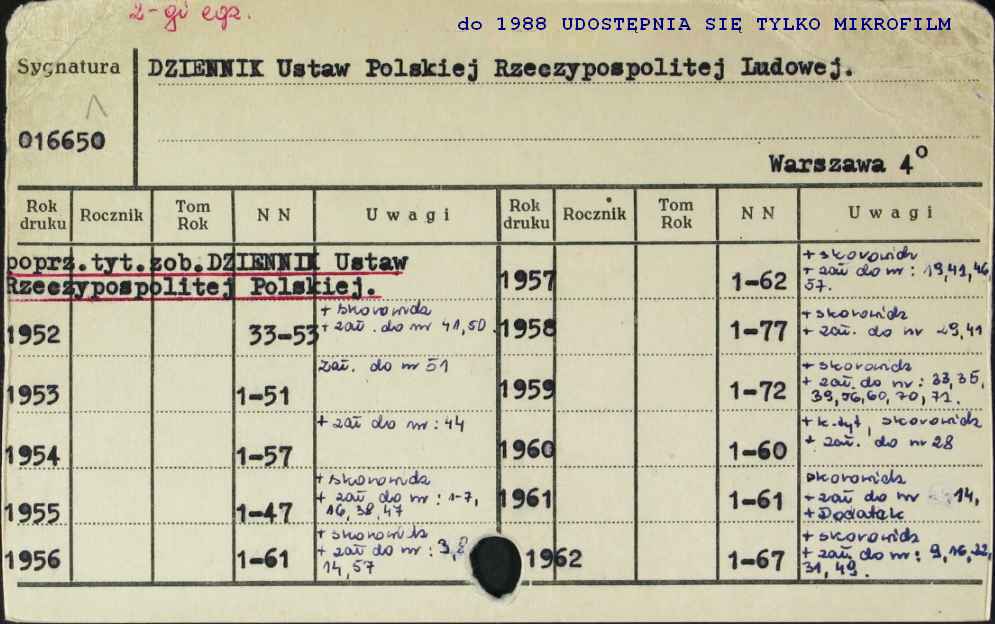 2-gi egz.
do 1988 UDOSTĘPNIA SIĘ TYLKO MIKROFILM
Sygnatura
DZIENNIK Ustaw Polskiej Rzeczypospolitej Ludowej.
016650
Warszawa 4°
Rok druku Rocznik Tom Rok N N Uwagi Rok druku Rocznik Tom Rok N N Uwagi
poprz.tyt.zob.DZIENNIK Ustaw
Rzeczypospolitej Polskiej.
1952 33-53 + skorowidz
+ zał. do nr 41,50.
1953 1-51 zał. do nr 51
1954 1-57 + zał do nr: 44
1955 1-47 + skorowidz
+ zał do nr: 1-7,
16, 38, 47
1956 1-61 + skorowidz
+ zał do nr: 3,8
14, 57
1957 1-62 + skorowidz
+ zał do nr: 19,41,46,
57.
1958 1-77 + skorowidz
+ zał. do nr 29,41
1959 1-72 + skorowidz
+ zał. do nr: 33,35,
39,56,60, 70, 71.
1960 1-60 + k.tyt, skorowidz
+ zał. do nr 28
1961 1-61 skorowidz
+ zał do nr 14,
+ Dodatek
1962 1-67 + skorowidz
+ zał. do nr: 9,16,22,
31, 49.